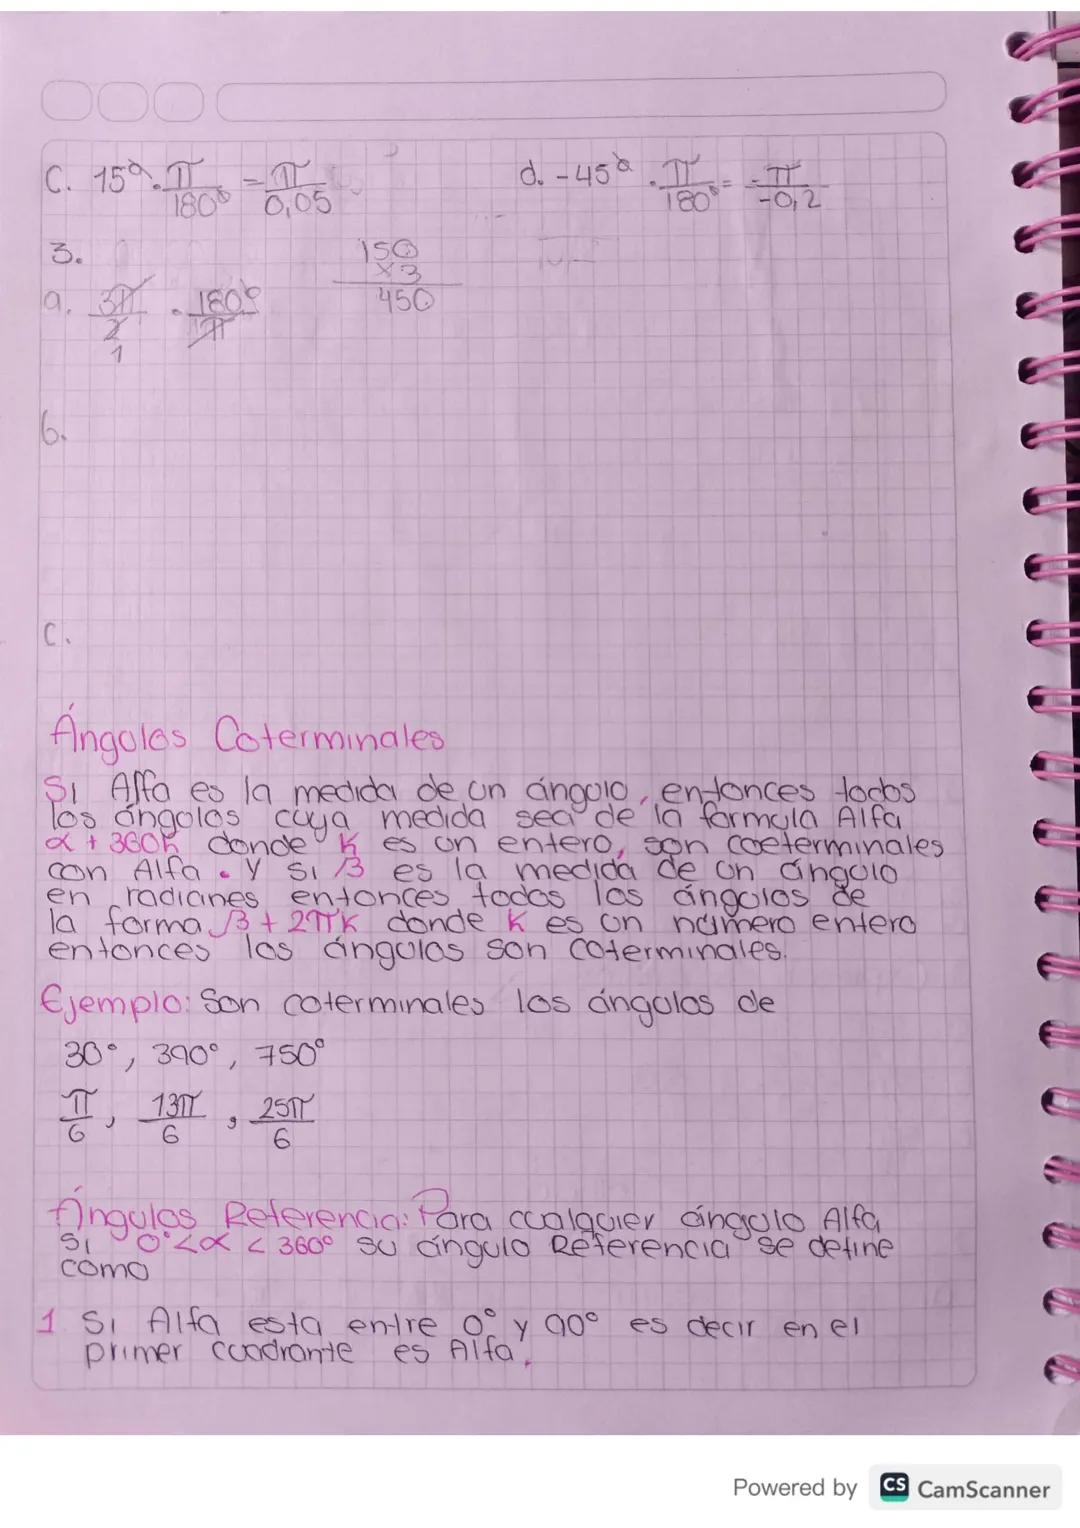 C. 15° . π/180° = π/0,05
d. -45° . π/180° = -π/-0,2
3.
150
x3
450
a. 3π/2 . 180°/π
1
6.
C.
Ángolos Coterminales
Si Alfa es la medida de un ángulo, entonces todos
los ángolos cuya medida sea de la formula Alfa
α + 360K donde K es un entero, son coeterminales
con Alfa. y si β es la medida de un ángulo
en radianes entonces todos los ángulos de
la forma β + 2πK donde K es un número entero
entonces los ángulos son coterminales.
Ejemplo: Son coterminales los ángulos de
30°, 390°, 750°
π/6, 13π/6, 25π/6
Ángulos Referencia: Para cualquier ángulo Alfa,
si 0°<α < 360° su ángulo Referencia se define
como
1 Si Alfa esta entre 0° y 90° es decir en el
primer cuadrante es Alfa.
Powered by CS CamScanner